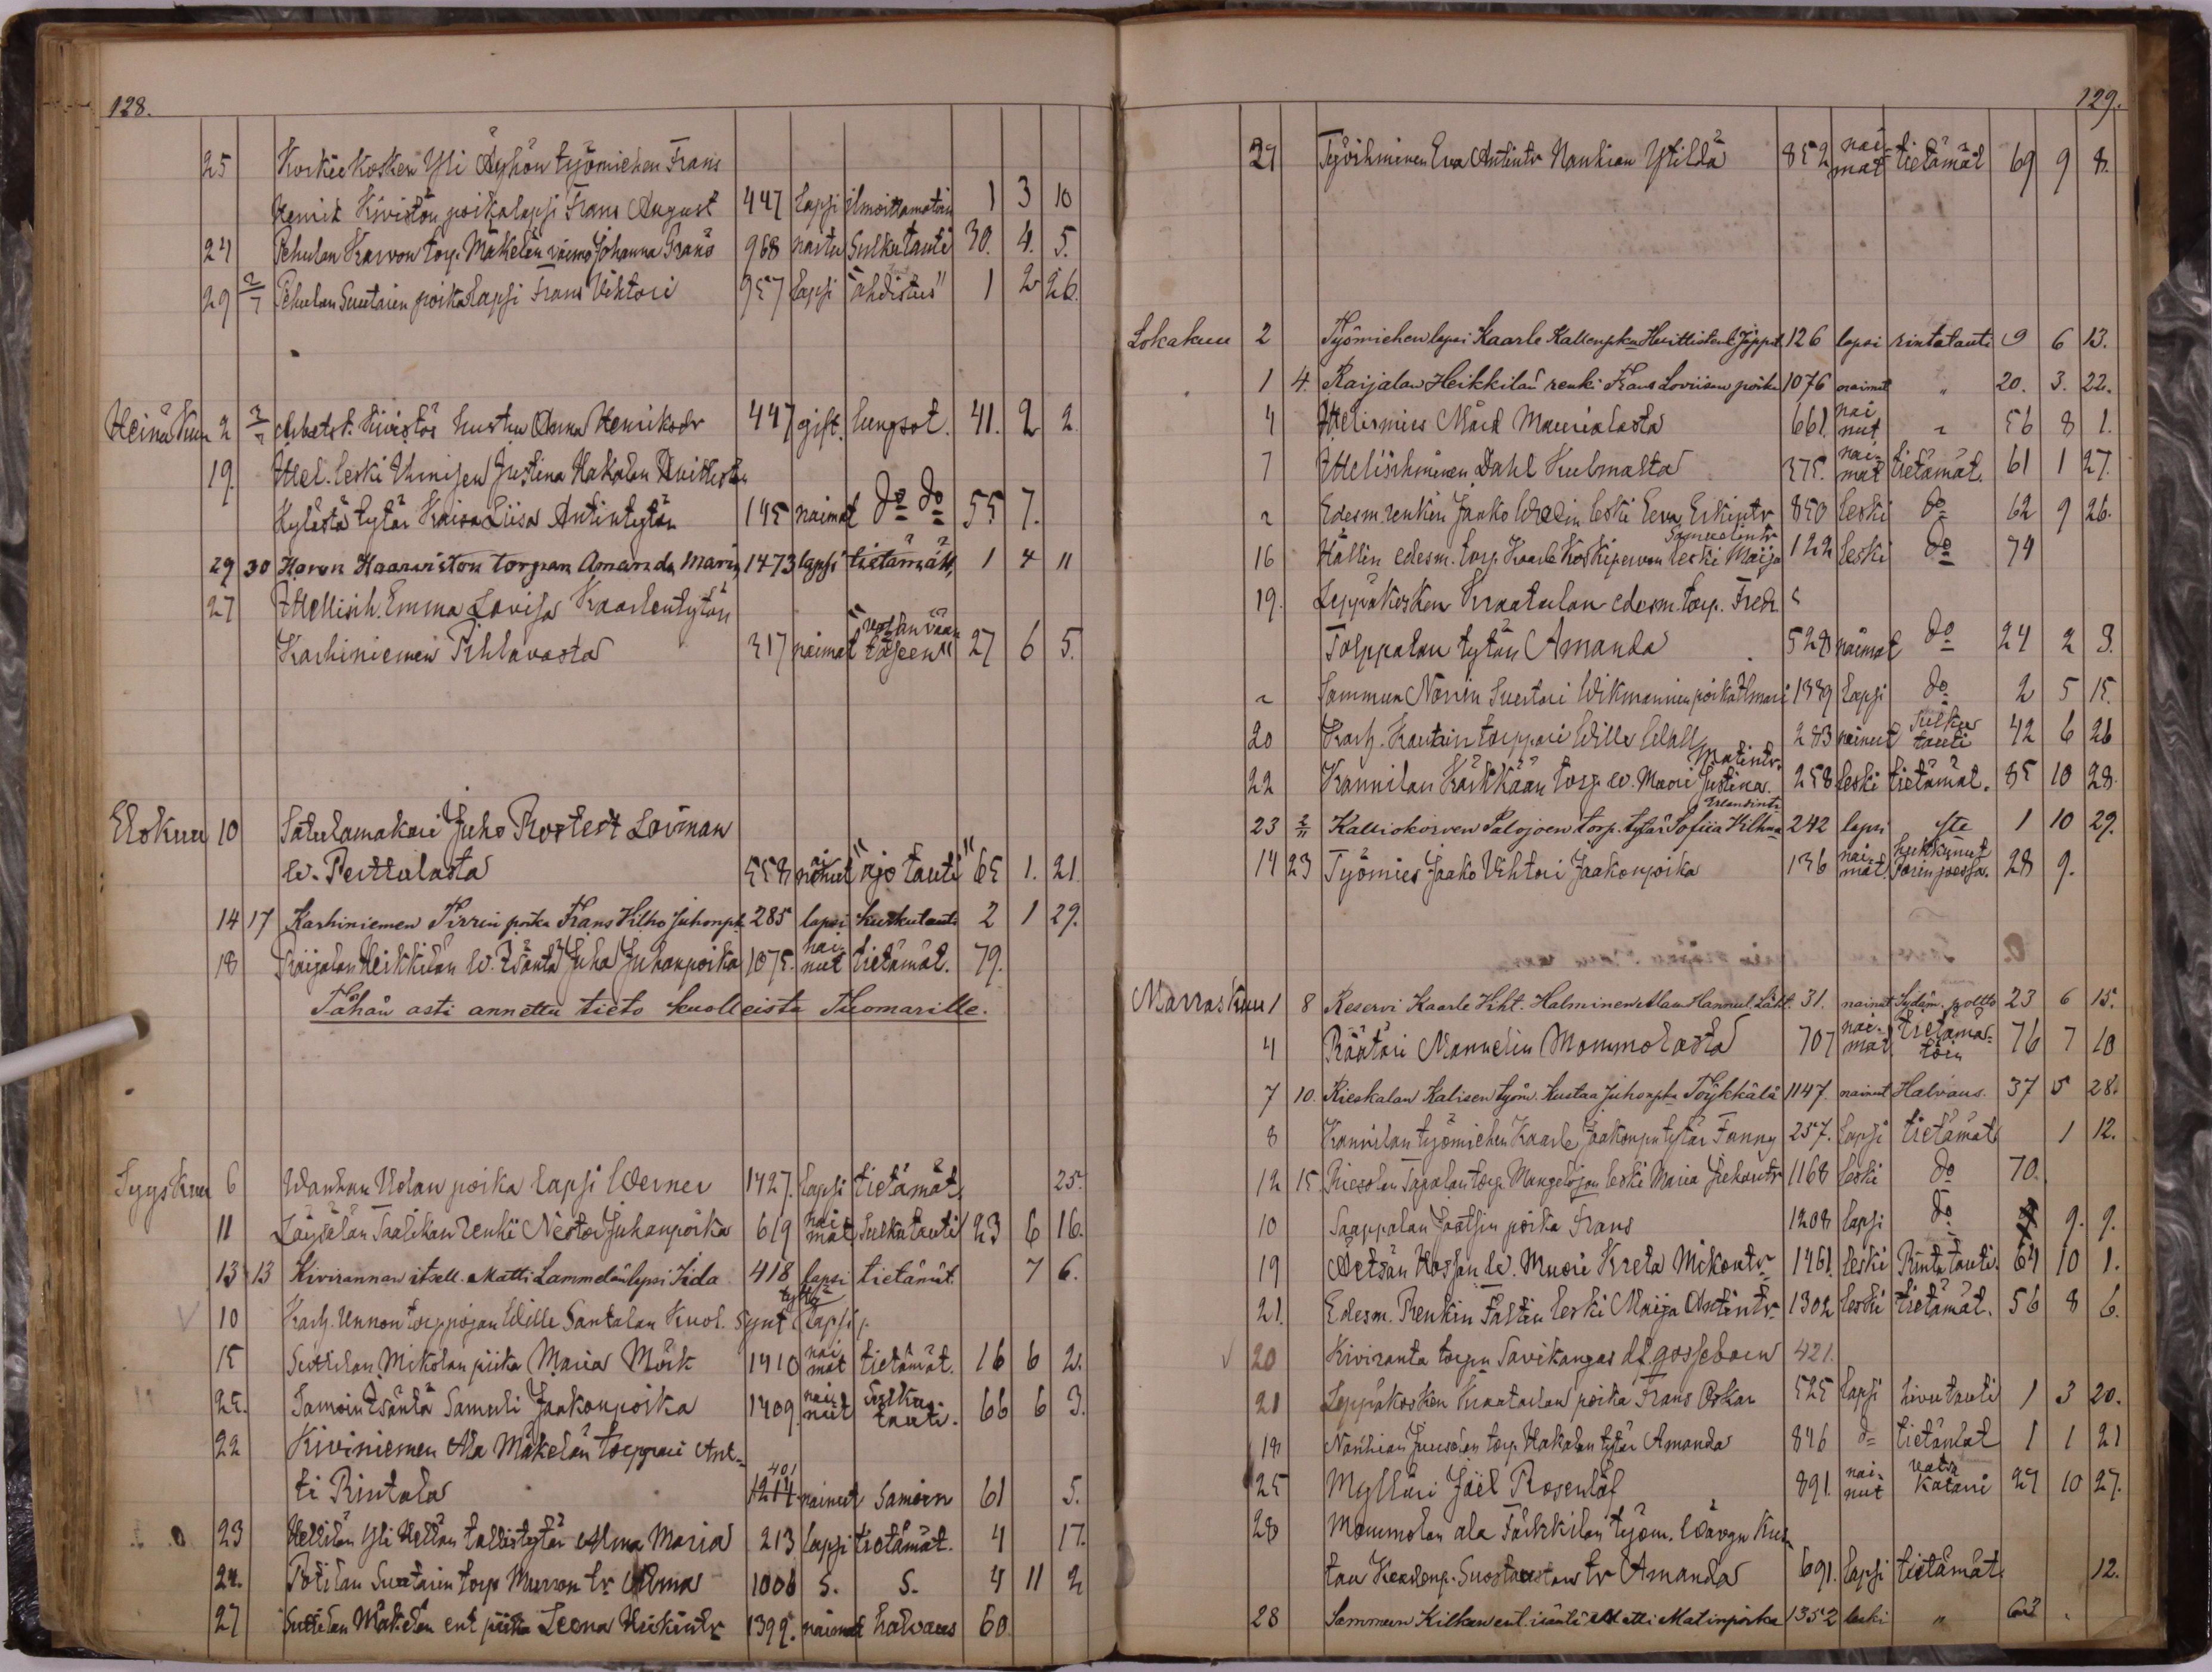 128.
25 Korkeekosken Yli Äyhön työmiehen Frans
Henrik Kivistön poikalapsi Frans August 447 lapsi ilmoittamatoin 1 3 10
24 Pehulan Karvon torp. Mäkelän vaimo Johanna Frans 968 naitu Sulkutauti 30. 4. 5.
29 2/7 Pehulan Suutarin poikalapsi Frans Vihtori 957 lapsi "ahdistus" 1 2 26.
Heinäkuu 2 3/7 Arbetsk. Kivistös hustru Anna Henriksdr 447 gift. lungsot. 41. 2 2
19. Itsel. leski Justina Hakalan
Kylästä tytär Kaisa Liisa Antintytär 145 naimat do do 55 7.
29 30 Haron Haarviston torpan Amanda Maria 1473 lapsi tietämätt, 1 4 11
27 Itsellisih. Emma Lovisa Kaarlentytär
Karhiniemen Pihlavasta 317 naimat "vatsan väänteeseen" 27 6 5.
Elokuu 10 Satulamakari Juho Rostedt Lövman
W. Perttulasta 558 nainut "ajotauti" 65 1. 21.
14 17 Karhiniemen Tirrin poika Frans Vilho Juhonpk 285 lapsi kurkutauti 2 1 29.
18 Raijalan Heikkilän W. Isäntä Juha Juhanpoika 1075. nainut tietämät. 79.
Tähän asti annettu tieto kuolleista Tuomarille.
Syyskuu 6 Wanhan Uolan poika lapsi Werner 1427. lapsi tietämät. 25.
11 Löysälän Taalikan renki Nestor Juhanpoika 619 naimat. Sulkutauti 23 6 16.
13 13 Kivirannan itsell. Matti Lammelan lapsi Iida 418 lapsi tietämät. 7 6.
10 Karh. Unnon torppajan Wille Santalan Kuol. Synt. tyttö lapsi
15 Suttilan Mikolan piika Maria Mörk 1410 naimat tietämät. 16 6 2.
25. Samoin Isäntä Samuli Jaakonpoika 1409. nainut Sulkutauti. 66 6 3.
22 Kiviniemen Ala Mäkelän torppari Antti
Rintala 401 1214. nainut Samoin 61 5.
23 Kellilän Yli Kellän tallistytär Alma Maria 213 lapsi tietämät. 4 17.
24. Potilan Suutarin torp. Murron tr Alma 1006 S. S. 4 11 2
27 Suttilan Mäkelän ent piika Leena Heikintr 1399. naimat halvaus 60
129.
29 Työihminen Eva Antintr Nanhian Ytildä 852 naimat tietämät 69 9 8.
Lokakuu 2 Työmiehen lapsi Kaarle Kallenpka Huittisten Jäppil 126 lapsi rintatauti 9 6 13.
1 4. Raijalan Heikkilän renki Frans Loviisan poika 1076 naimat " 20. 3. 22.
4 Itselismies Mård Maurialasta 661. nainut " 56 8 1.
7 Itselisihminen Dahl Kulmasta 375. naimat tietämät. 61 1 27.
" Edesm. renkin Jaako leski Eeva Erkintr 850 leski do 62 9 26.
16 Hällin edesm. torp. Kaarle Koskipervon leski Maija Samuelintr 122 leski do 74
19. Leppäkosken Kraatulan edesm. torp. Fredr.
Tolppalan tytär Amanda 528 naimat do 24 2 3.
" Sammun Norrin Suutari Wikmannin poika Ilmari 1339 lapsi do 2 5 15.
20 Karh. Kautzin torppari Wille Wall 283 nainut Sulkutauti 42 6 26
22 Kannilan Kärkkään torp. w. Muori Justina Matintr. 258 leski tietämät. 85 10 28.
23 2/11 Kalliokorven Salojoen torp. tytär Sofiia Vilhna Erlandintr 242 lapsi ste 1 10 29.
14 23 Työmies Jaako Vihtori Jaakonpoika 136 naimat. hukkunut Porin joessa. 28 9.
Marraskuu 1 8 Reservi Kaarle Viht. Halminen Hannul. Läht. 31. nainut Sydäm. poltto 23 6 15.
4 Räätäri Mannelin Mommolasta 707 naimat tietämätöin 76 7 10
7 10. Rieskalan Kalisen työm. Kustaa Juhonpka Töykkälä 1147. nainut Halvaus. 37 5 28.
8 Kannilan työmiehen Kaarle Jaakonpn tytär Fanny 257. lapsi tietämät. 1 12.
12 15 Riesolan Tapalan torp. Mangelojan leski Maria Juhantr 1168 leski do 70.
10 Saappalan Jaatsin poika Frans 1208 lapsi do 9. 9.
19 Aetsän Kossan W. Muori Kreta Mikontr 1461. leski Rintatauti. 64 10 1.
21. Edesm. Renkin Faltin leski Maija Antintr. 1302 leski tietämät. 56 8 6.
20 Kiviranta torpn Savikangas df. gossebarn 421.
21 Leppäkosken Kraatulan poika Frans Oskar 525 lapsi hivutauti 1 3 20.
18 Nanhian Juusolan torp. Hakalan tytär Amanda 846 d= tietämät 1 1 21
25 Mylläri Joel Rosenlöf 891. nainut vatsa katari 29 10 27.
28 Mommolan ala Färkkilän työm. Kustan
Kaarlenp. Suostaustan tr Amanda 691. lapsi tietämät. 12.
28 Sammun Kilkun ent. isäntä Matti Matinpoika 1352 leski "